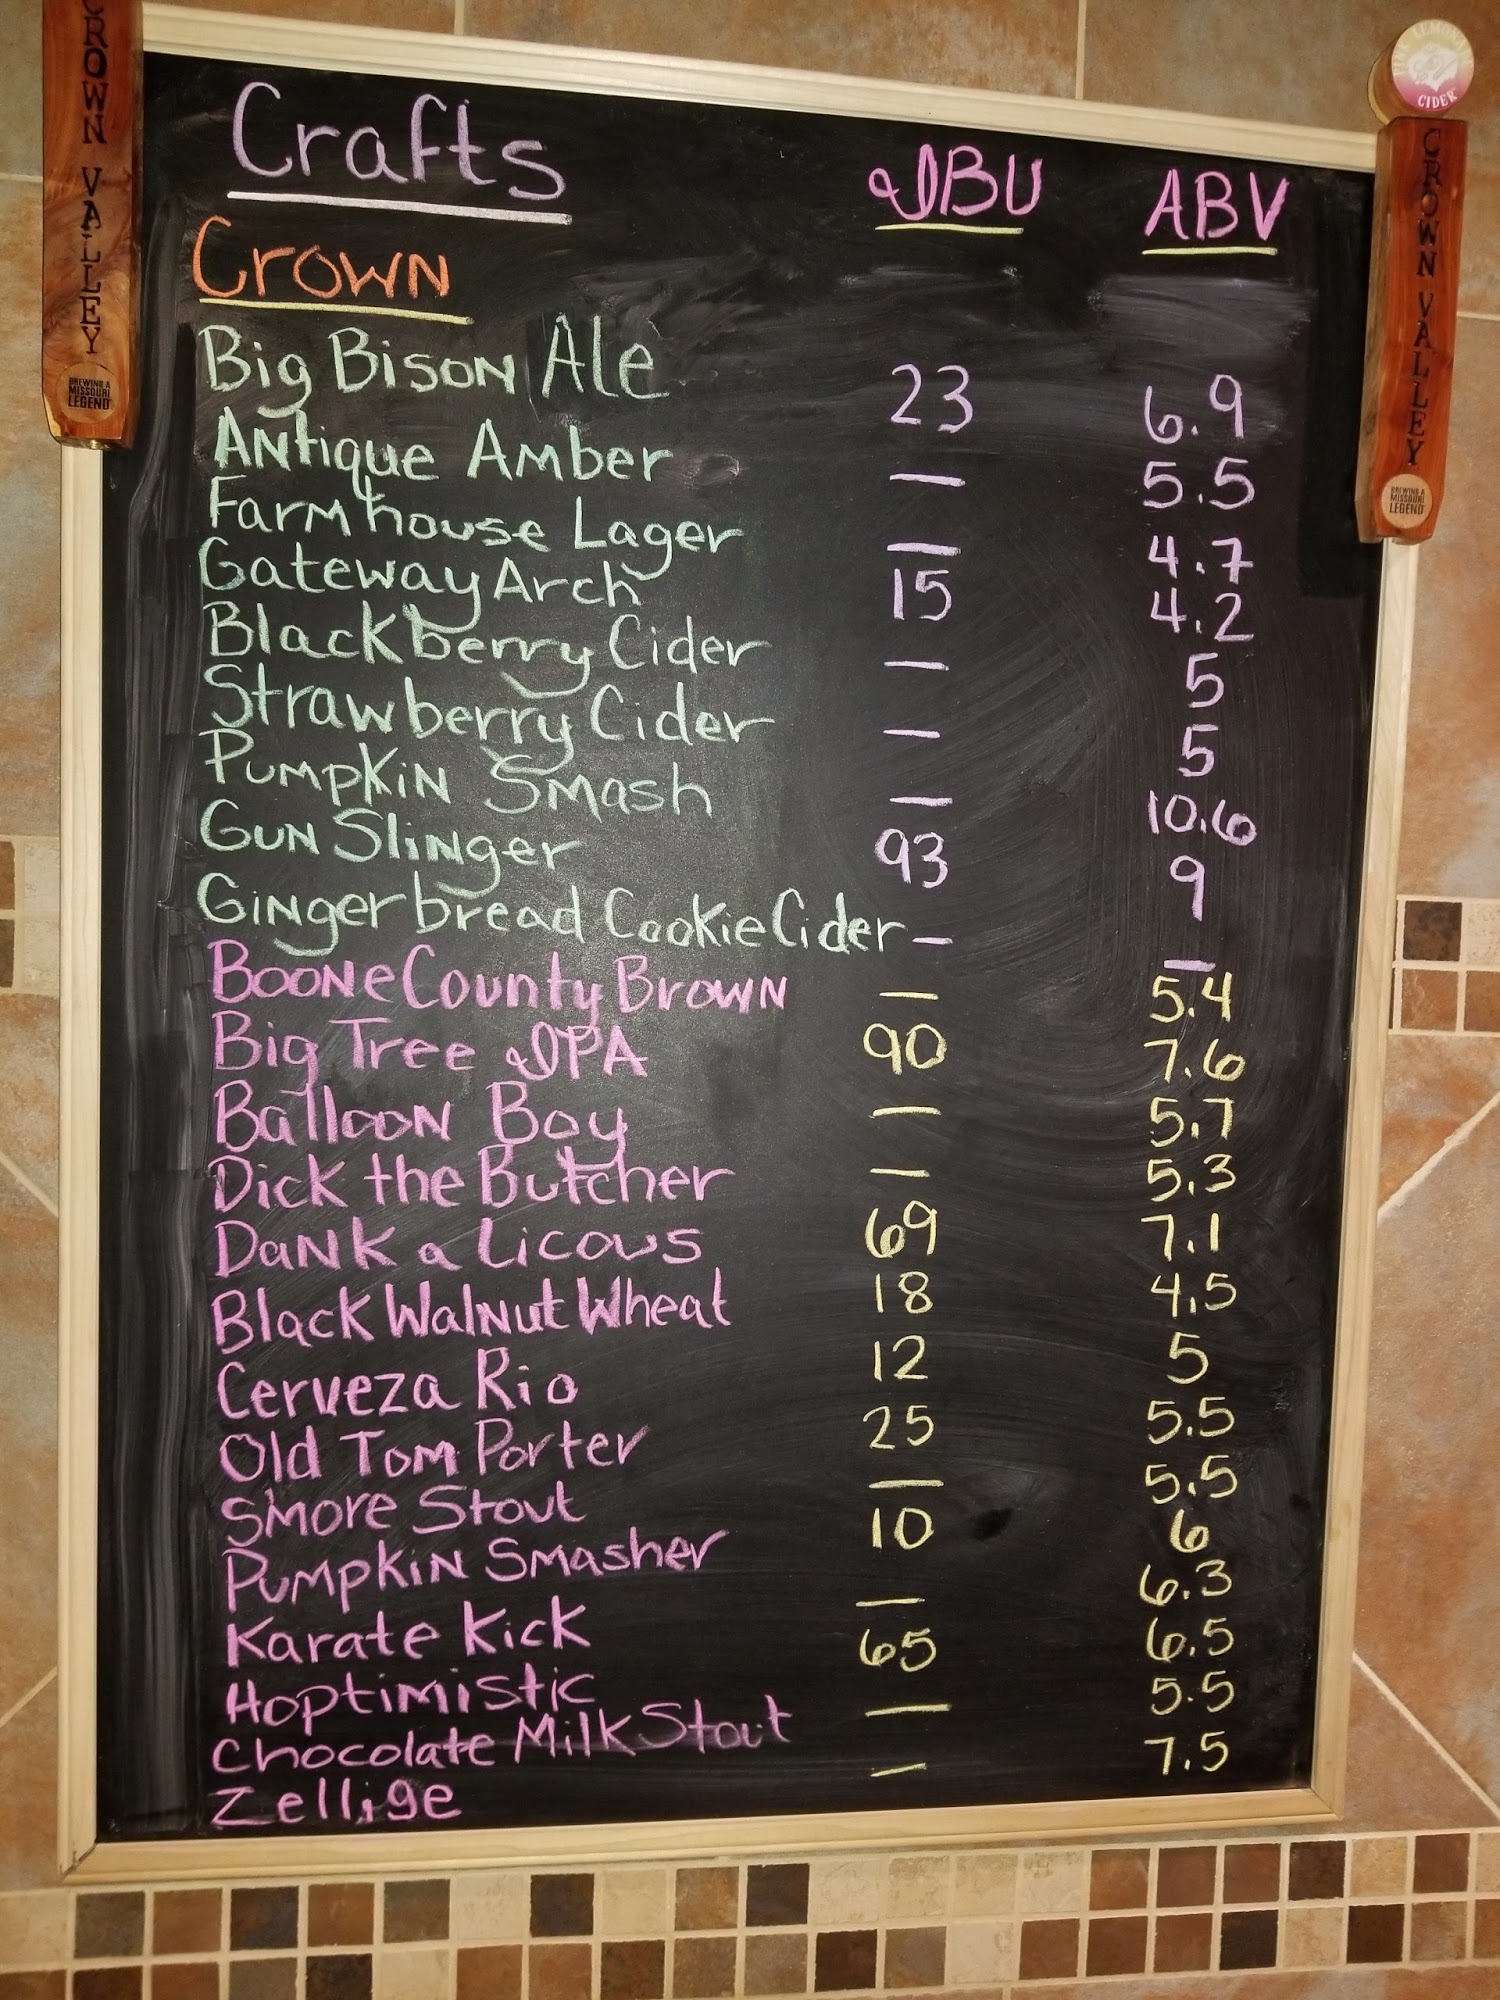 CROWN VALLEY
BREWING A
MISSOURI
LEGEND
Crafts IBU ABV
Crown
Big Bison Ale 23 6.9
Antique Amber — 5.5
Farmhouse Lager — 4.7
Gateway Arch 15 4.2
Blackberry Cider — 5
Strawberry Cider — 5
Pumpkin Smash — 10.6
Gun Slinger 93 9
Gingerbread Cookie Cider — —
Boone County Brown — 5.4
Big Tree IPA 90 7.6
Balloon Boy — 5.7
Dick the Butcher — 5.3
Dank a licous 69 7.1
Black Walnut Wheat 18 4.5
Cerveza Rio 12 5
Old Tom Porter 25 5.5
S'more Stout — 5.5
Pumpkin Smasher 10 6
Karate Kick — 6.3
Hoptimistic 65 6.5
Chocolate Milk Stout — 5.5
Zellige — 7.5
CIDER
CROWN VALLEY
BREWING A
MISSOURI
LEGEND